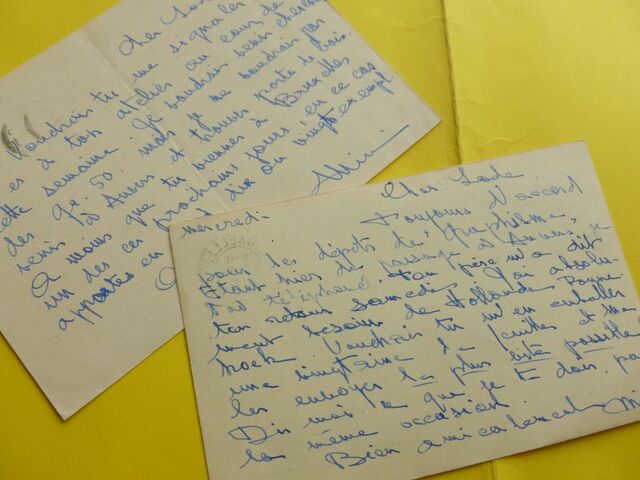 Cher Lod
Voudrais tu me signaler
es à ton atelier au cours de
cette semaine. Je voudrais venir chercher
des Qc. 50. mais je ne voudrais pas
venir à Anvers et trouver porte de bois
A moins que tu viennes à Bruxelles
un des ces prochains jours (en ce cas
apportes en dix ou vingt exempl
Cher Lode
mercredi
Toujours d'accord
pour les dépôts de "Graphisme"
Etant hier de passage à Anvers, je
t'ai téléphoné. Ton père m'a dit
ton retour samedi. J'ai absolu-
ment besoin de Hollande Panne
hoek. Voudrais tu m'en emballer
une vingtaine de feuilles et me
les envoyer le plus vite possible
Dis moi ce que je te dois par
la même occasion.
Bien amicalement